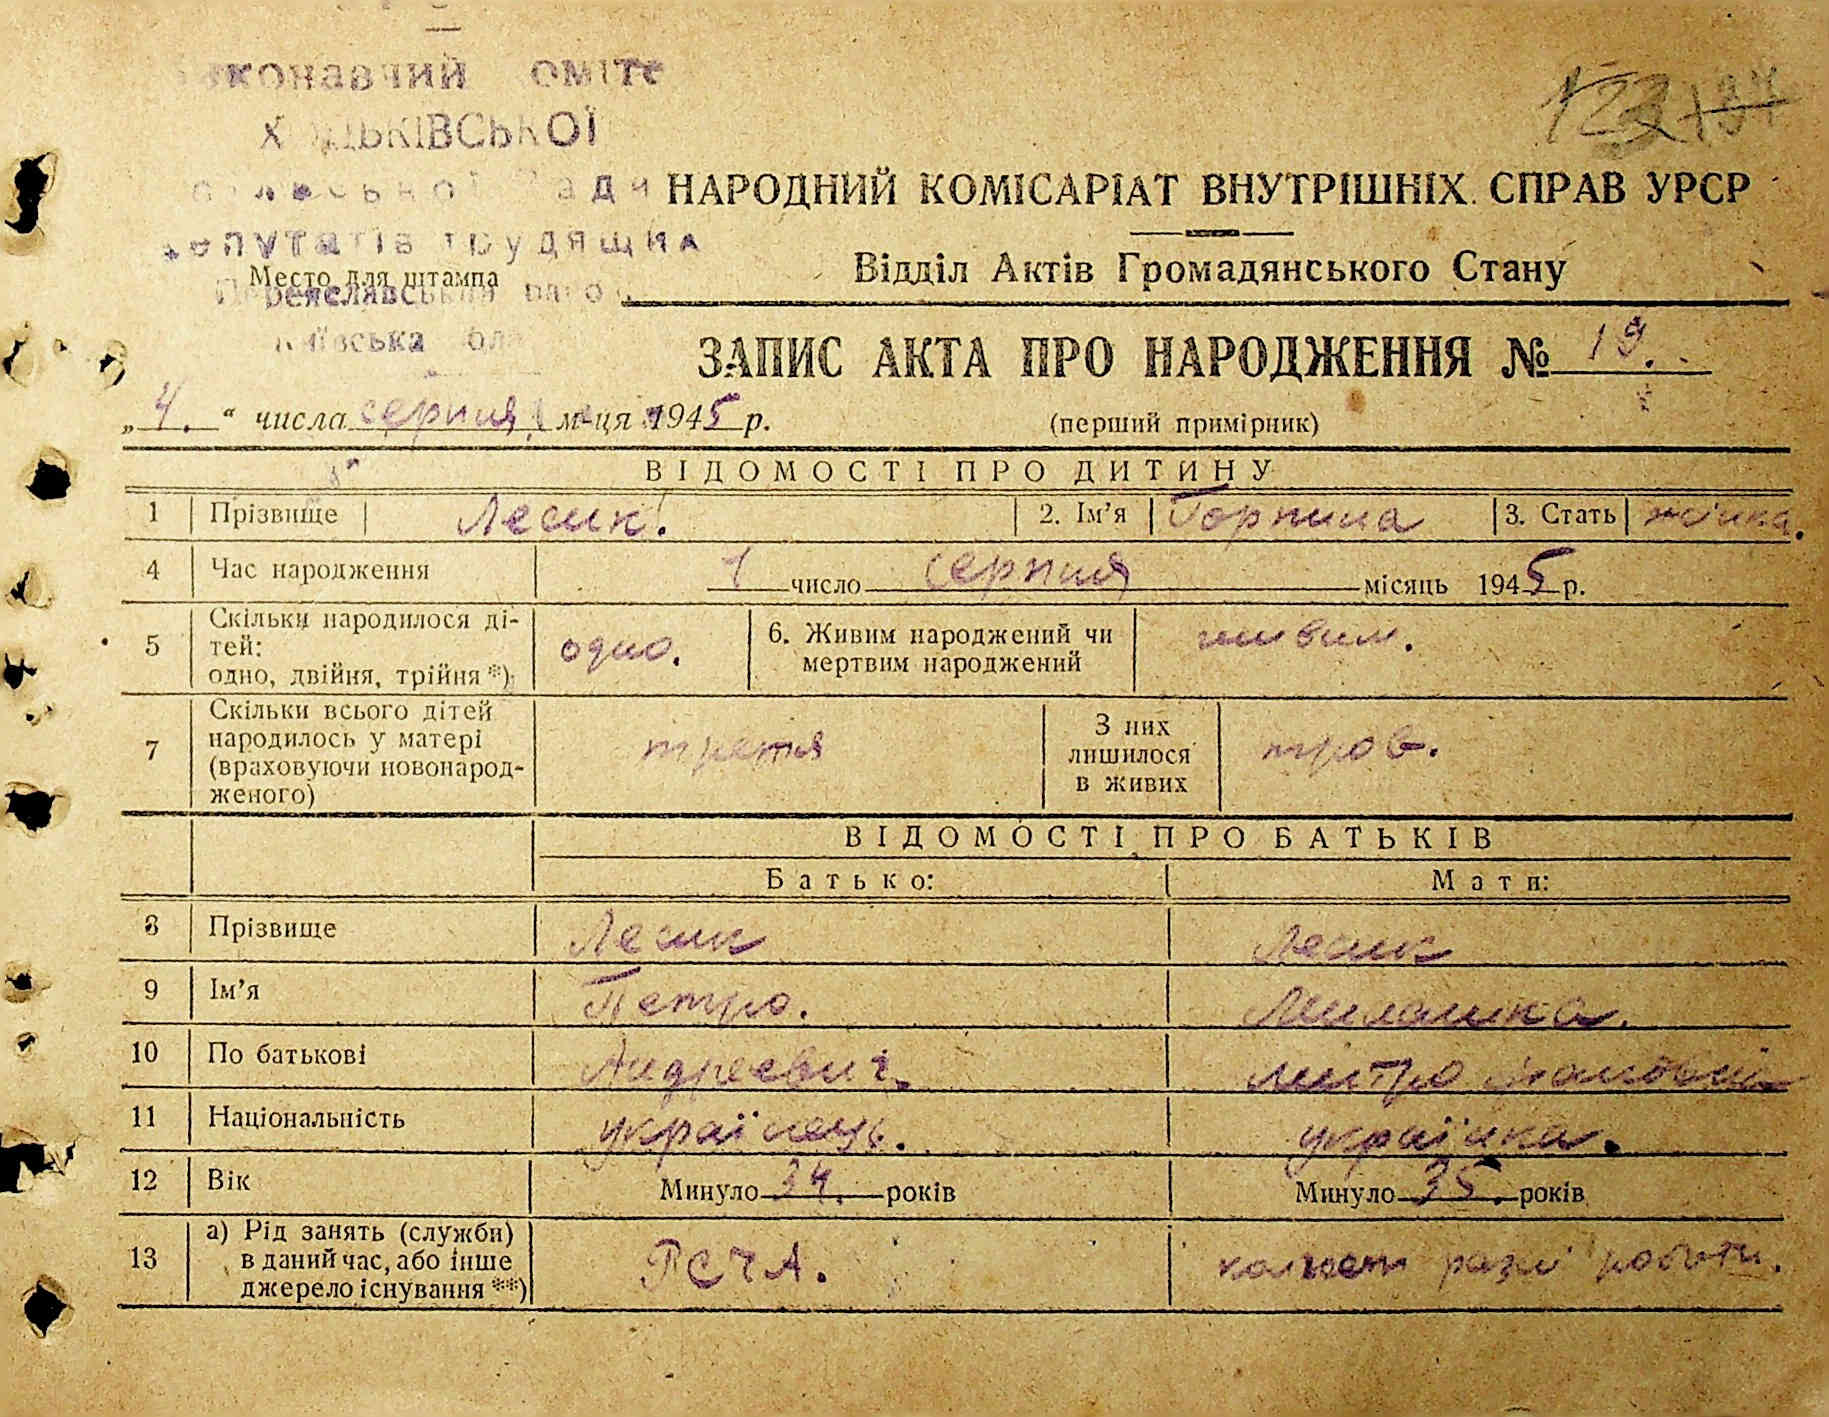 конавчий оміте
Х ЦЬКІВСЬКОЇ
ільської Ради
депутатів трудящих
Место для штампа
Переяславський
Київська обл
НАРОДНИЙ КОМІСАРІАТ ВНУТРІШНІХ СПРАВ УРСР
Відділ Актів Громадянського Стану
ЗАПИС АКТА ПРО НАРОДЖЕННЯ № 19.
„ 4. “ числа серпня м-ця 1945 р. (перший примірник)
ВІДОМОСТІ ПРО ДИТИНУ
1 Прізвище Лесик. 2. Ім'я Горпина 3. Стать жінка.
4 Час народження 1 число серпня місяць 1945 р.
5 Скільки народилося ді-
тей:
одно, двійня, трійня *) одно. 6. Живим народжений чи
мертвим народжений живим.
7 Скільки всього дітей
народилось у матері
(враховуючи новонарод-
женого) третя З них
лишилося
в живих троє.
ВІДОМОСТІ ПРО БАТЬКІВ
Батько: Мати:
8 Прізвище Лесик Лесик
9 Ім'я Петро. Милашка.
10 По батькові Андреевич.
11 Національність українець. українка.
12 Вік Минуло 34. років Минуло 35. років
13 а) Рід занять (служби)
в даний час, або інше
джерело існування **) РСЧА. роботи.